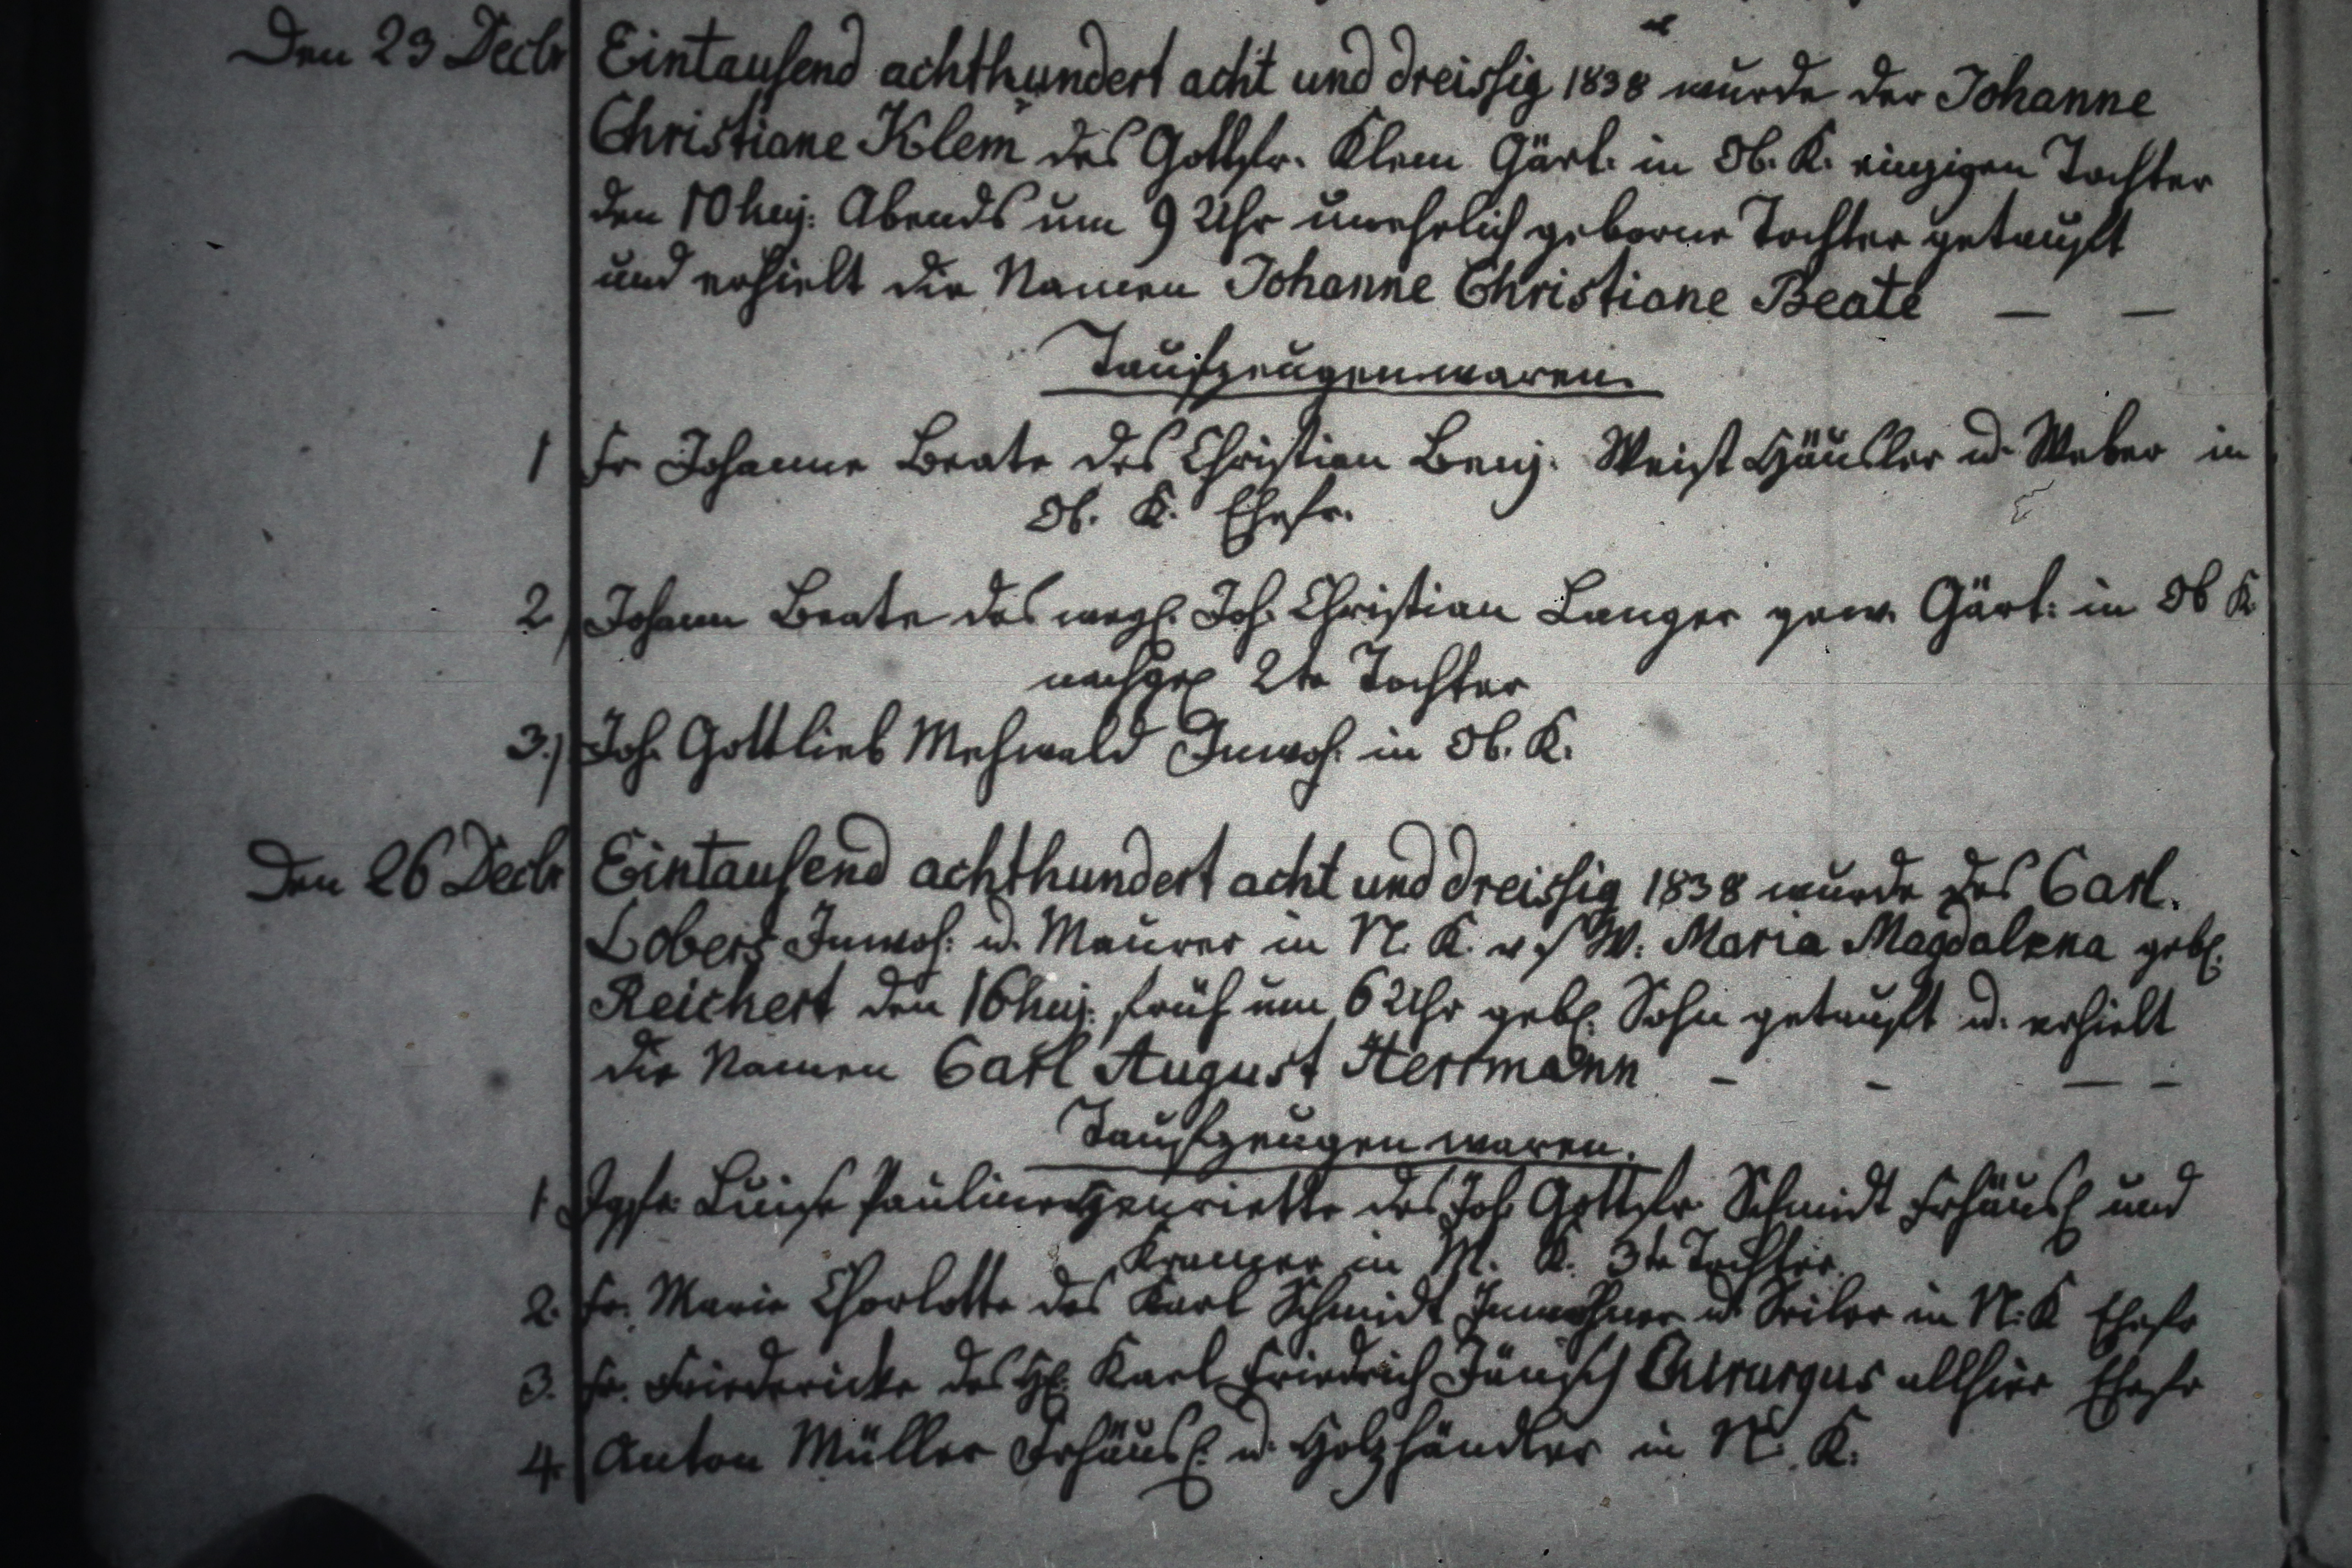 Den 23 Decbr Eintausend achthundert acht und dreissig 1838 wurde der Johanne
Christiane Klem̄ des Gottfr. Klem Gärt. in Ob. K. einzigen Tochter
den 10 huj: Abends um 9 Uhr unehelich geborne Tochter getauft
und erhielt die Namen Johanne Christiane Beate — —
Taufzeugen waren.
1 Fr Johanne Beate des Christian Benj. Weist Häusler u. Weber in
Ob. K. Ehefr.
2) Johann Beate des Joh. Christian Langer gew. Gärt: in Ob K.
nachgel 2te Tochter
3.) Joh. Gottlieb Mehwald Inwoh. in Ob. K.
Den 26 Decbr Eintausend achthundert acht und dreissig 1838 wurde des Carl.
Lobers Inwoh: u. Maurer in N. K. v. s W. Maria Magdalena geb.
Reichert den 16 huj. früh um 6 Uhr geb. Sohn getauft u. erhielt
die Namen Carl August Herrmann - - — -
Taufzeugen waren.
1. Jgfr. Luise Pauline Henriette des Joh Gottfr Schmidt Frhäusl und
Kramer in M. K. 3te Tochter.
2. Fr. Marie Charlotte des Karl Schmidt Inwohner u. Seiler in N. K Ehefr
3. Fr. Friedericke des H. Karl Friedrich Jänisch Chirurgus allhier Ehefr
4. Anton Müller Frhäusl. u. Holzhändler in N. K.